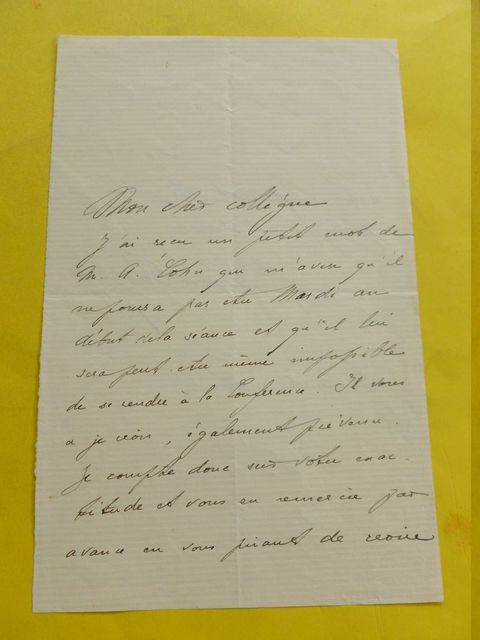 Mon cher collègue
J'ai reçu un petit mot de
M. A. Cohn qui m'avise qu'il
ne pourra pas être Mardi au
début de la séance et qu'il lui
sera peut être même impossible
de se rendre à la Conférence. Il vous
a je crois, également prévenu.
Je compte donc sur votre exac-
titude et vous en remercie par
avance en vous priant de croire